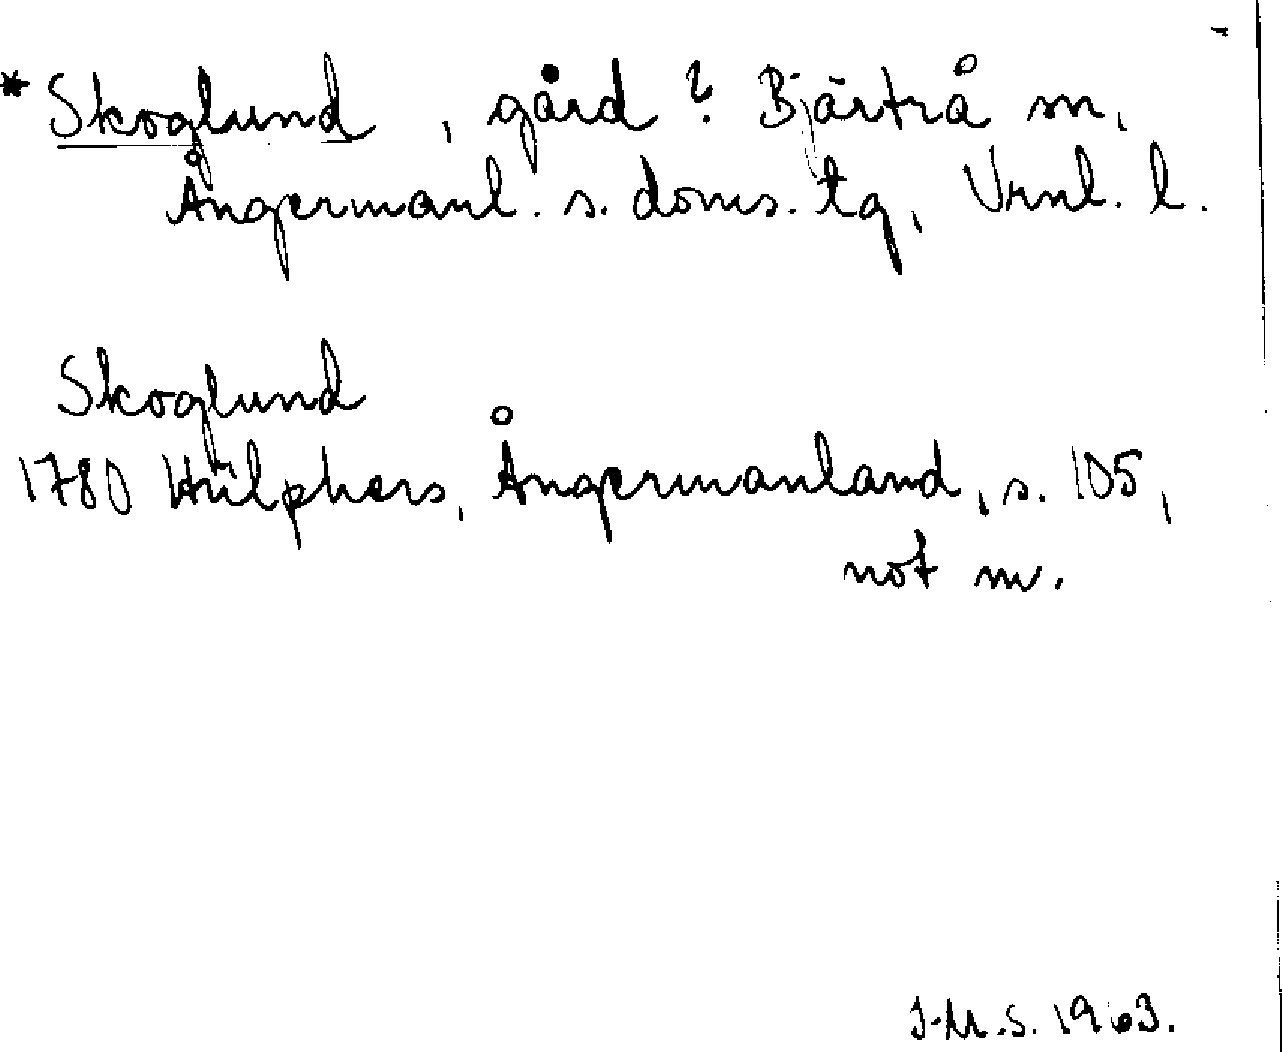 * Skoglund, gård? Bjärtrå sn,
Ångermanl. s. doms. tg, Vrnl. l.
Skoglund
1780 Hülphers, Ångermanland, s. 105,
not m.
J.M.S. 1963.